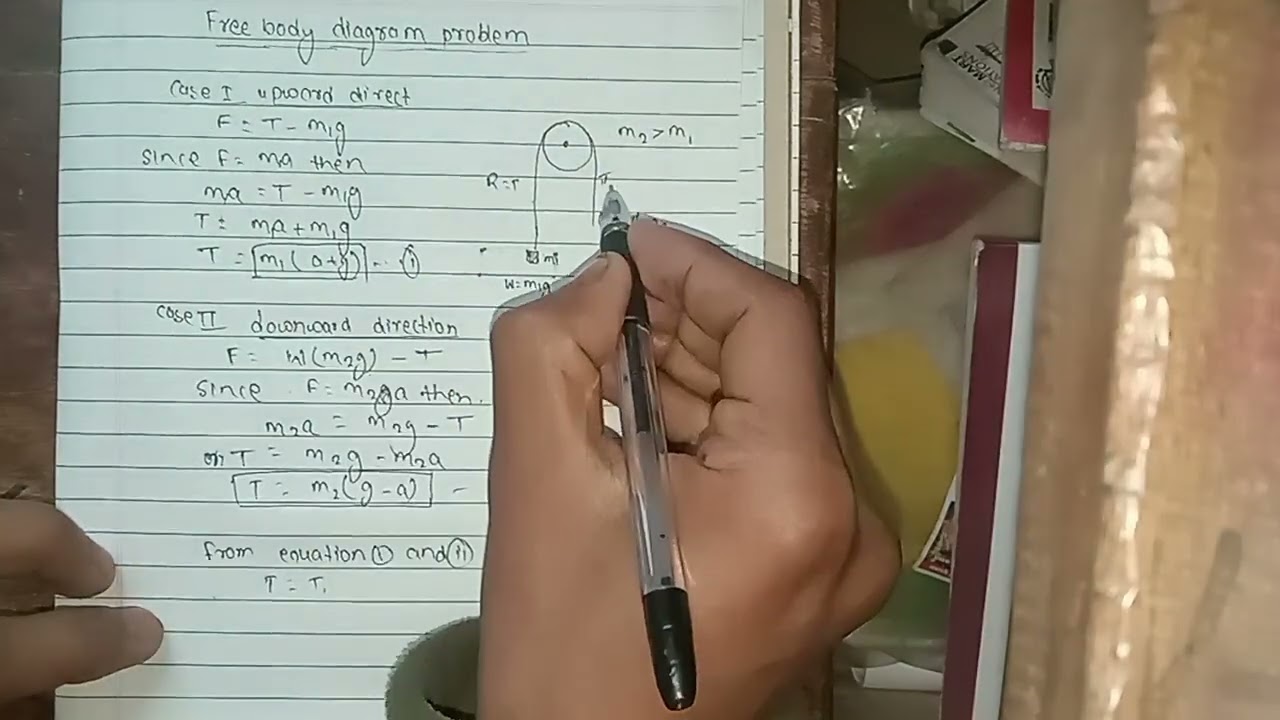 Free body diagram problem
Case I upward direct
F = T - m₁g
since F = ma then
ma = T - m₁g
T = ma + m₁g
T = m₁(a+g) -- (i)
m₂ > m₁
R = T
T
m₁
W = m₁g
Case II downward direction
F = W(m₂g) - T
since F = m₂a then.
m₂a = m₂g - T
or T = m₂g - m₂a
T = m₂(g - a) -
from equation (i) and (ii)
T = T,